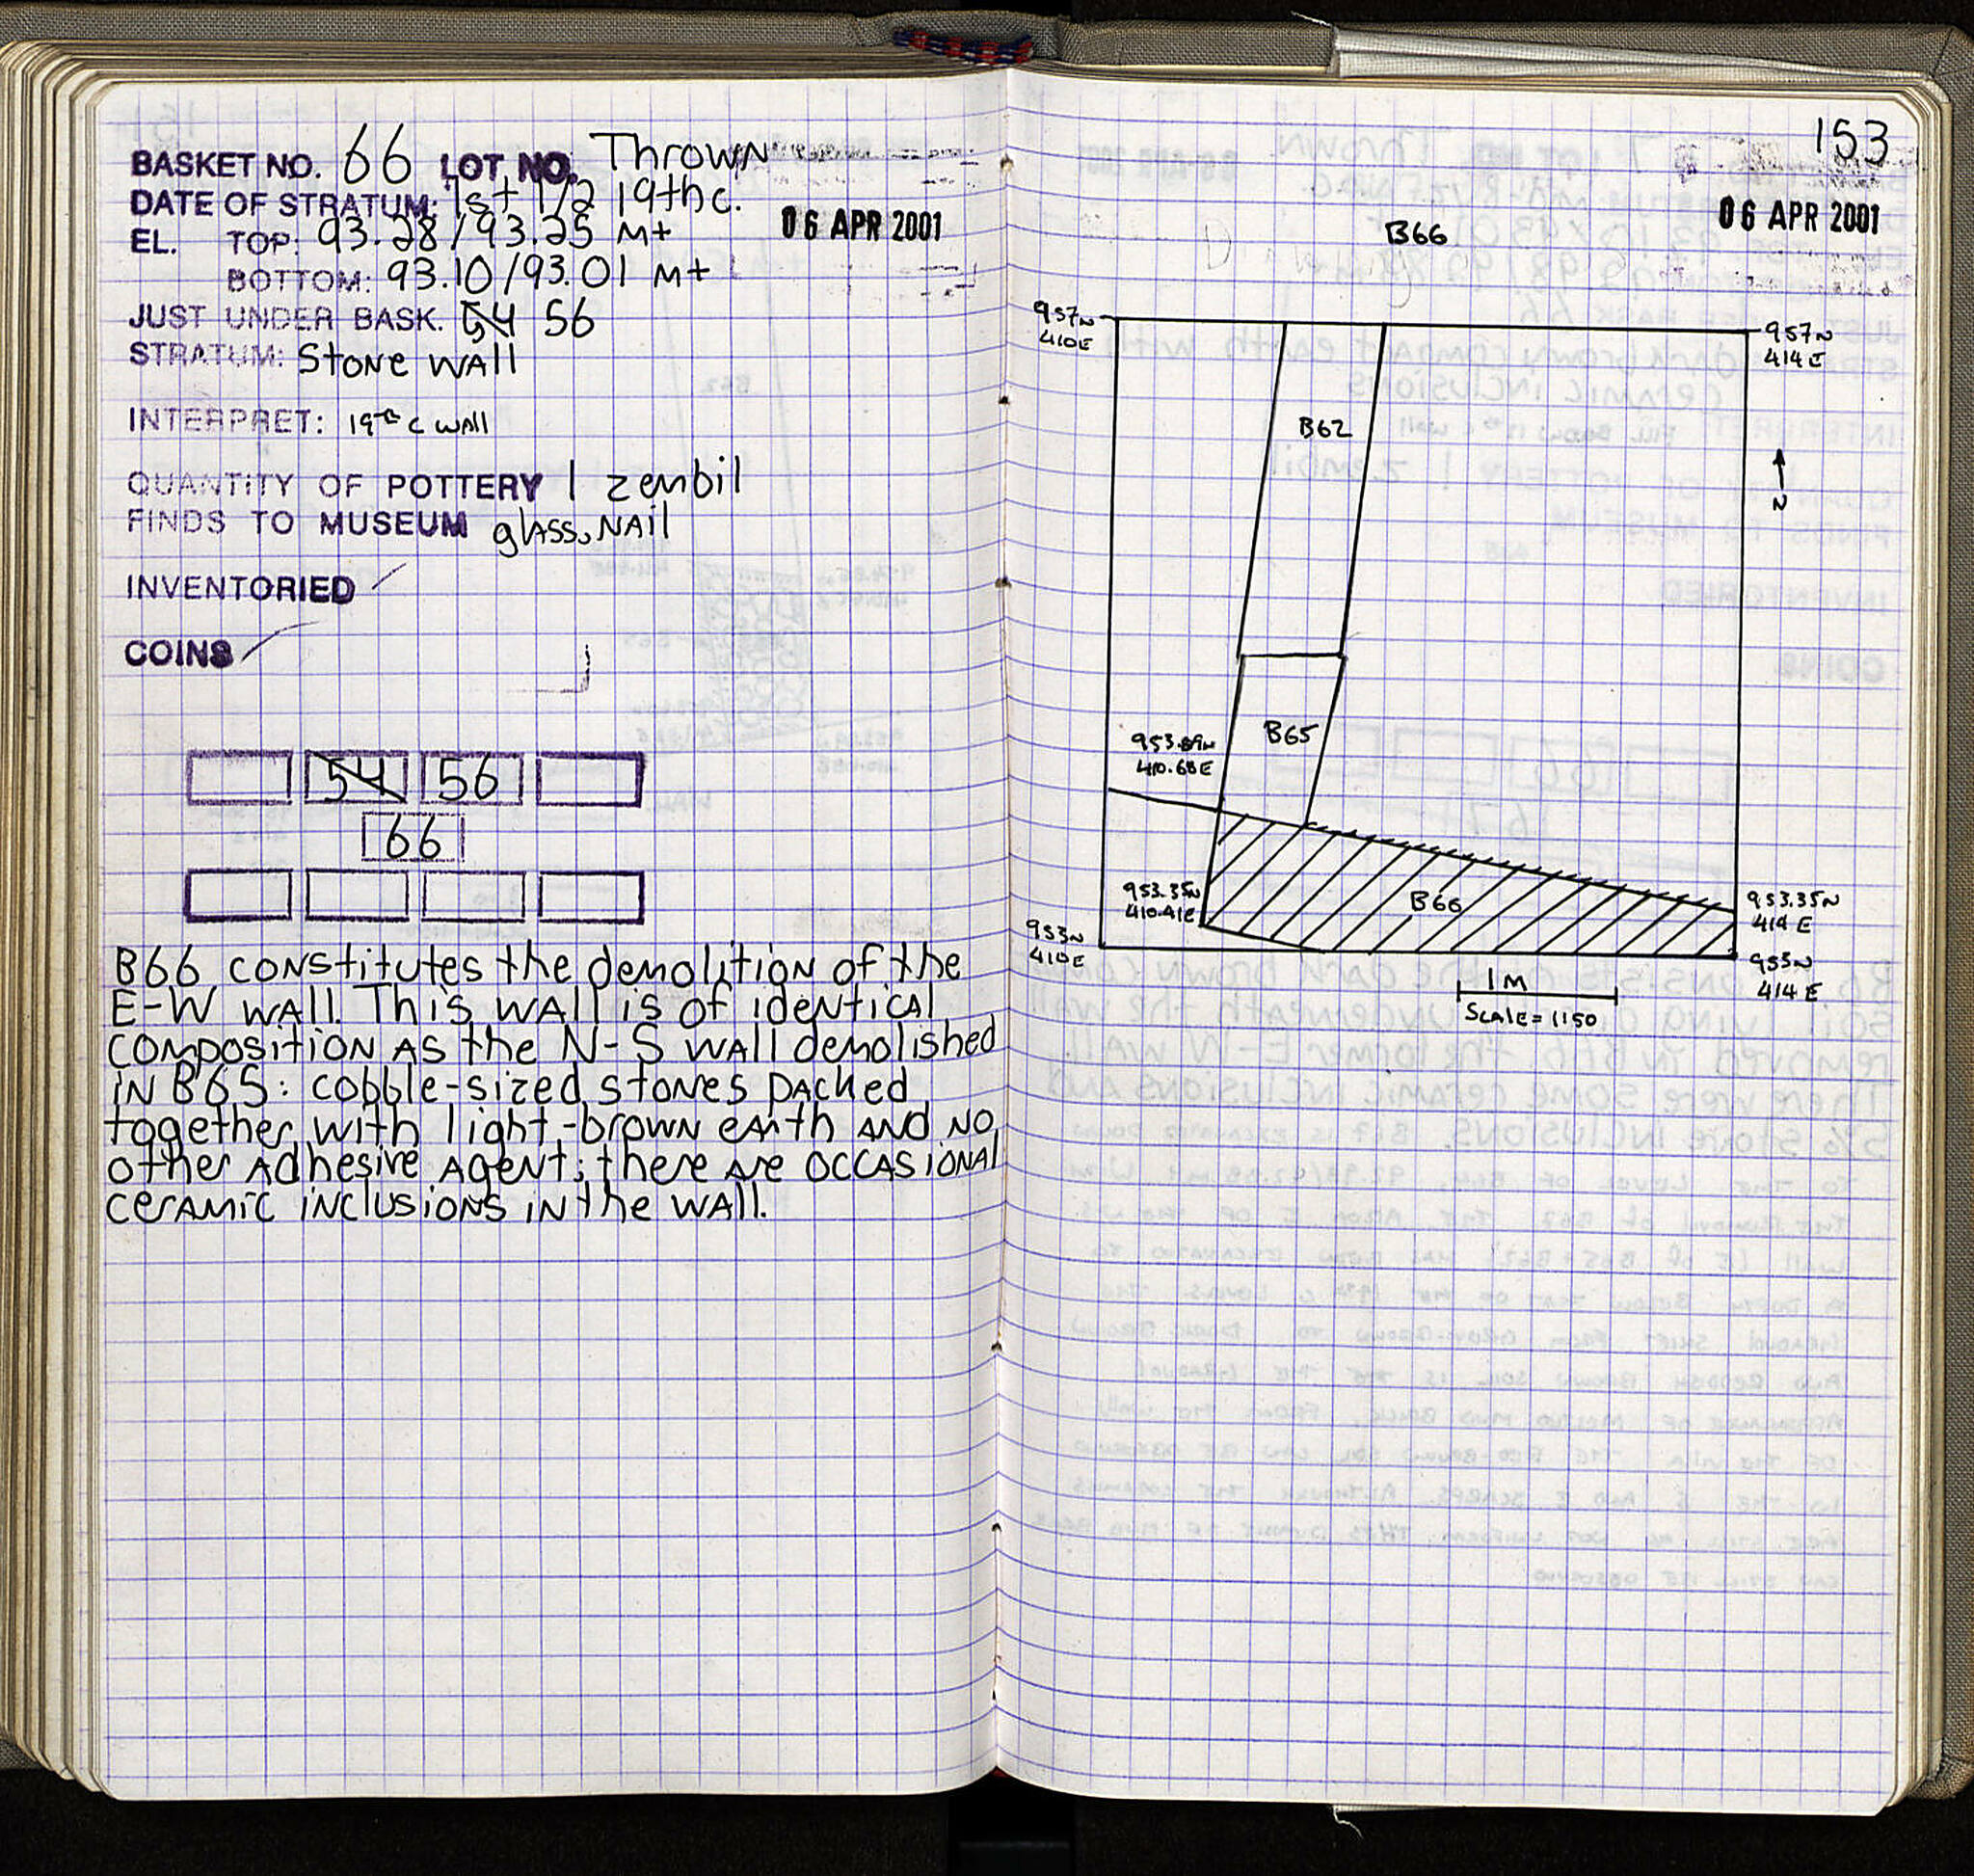 BASKET NO. 66 LOT NO. Thrown
DATE OF STRATUM: 1st 1/2 19th c.
EL. TOP: 93.28/93.25 Mt
06 APR 2001
BOTTOM: 93.10/93.01 Mt
JUST UNDER BASK. 54 56
STRATUM: Stone Wall
INTERPRET: 19th C WALL
QUANTITY OF POTTERY 1 zembil
FINDS TO MUSEUM glass, NAIL
INVENTORIED
COINS
54 56
66
B66 constitutes the demolition of the
E-W wall. This wall is of identical
composition as the N-S wall demolished
in B65: cobble-sized stones packed
together with light-brown earth and no
other adhesive agent; there are occasional
ceramic inclusions in the wall.
153
06 APR 2001
B66
957N
410E
957N
414E
B62
N
B65
953.89N
410.68E
953.35N
410.41E
B66
953.35N
414E
953N
410E
953N
414E
1M
Scale = 1:50